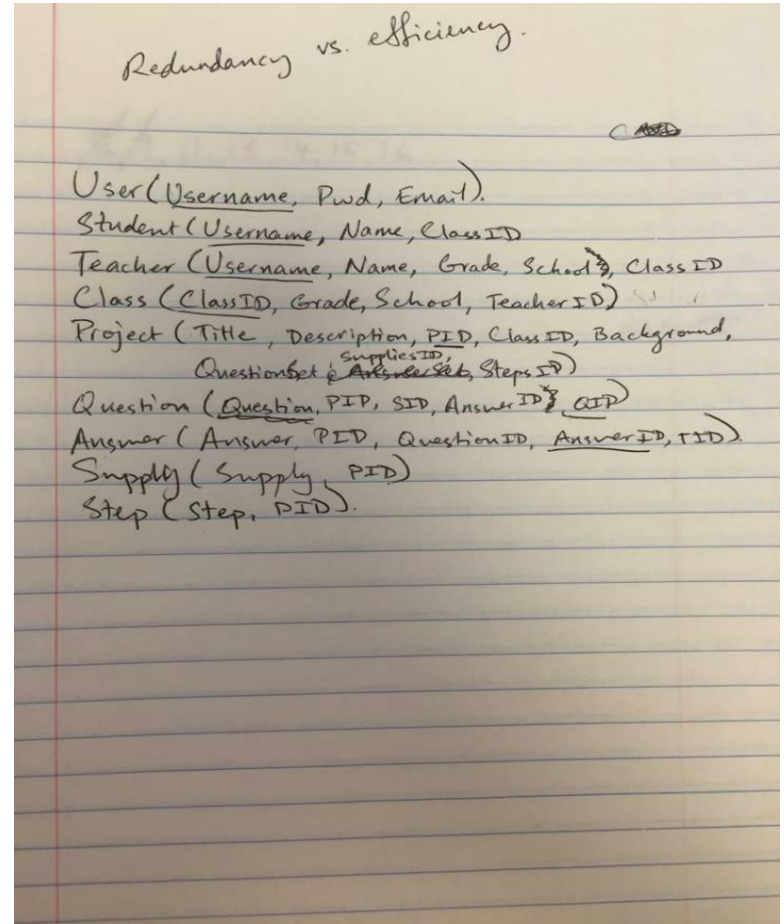 Redundancy vs. efficiency.
User (Username, Pwd, Email).
Student (Username, Name, ClassID
Teacher (Username, Name, Grade, School, ClassID
Class (ClassID, Grade, School, TeacherID)
Project (Title, Description, PID, ClassID, Background,
SuppliesID,
QuestionSet, StepsID)
Question (Question, PID, SID, AnswerID, QID)
Answer (Answer, PID, QuestionID, AnswerID, TID).
Supply (Supply, PID)
Step (Step, PID).